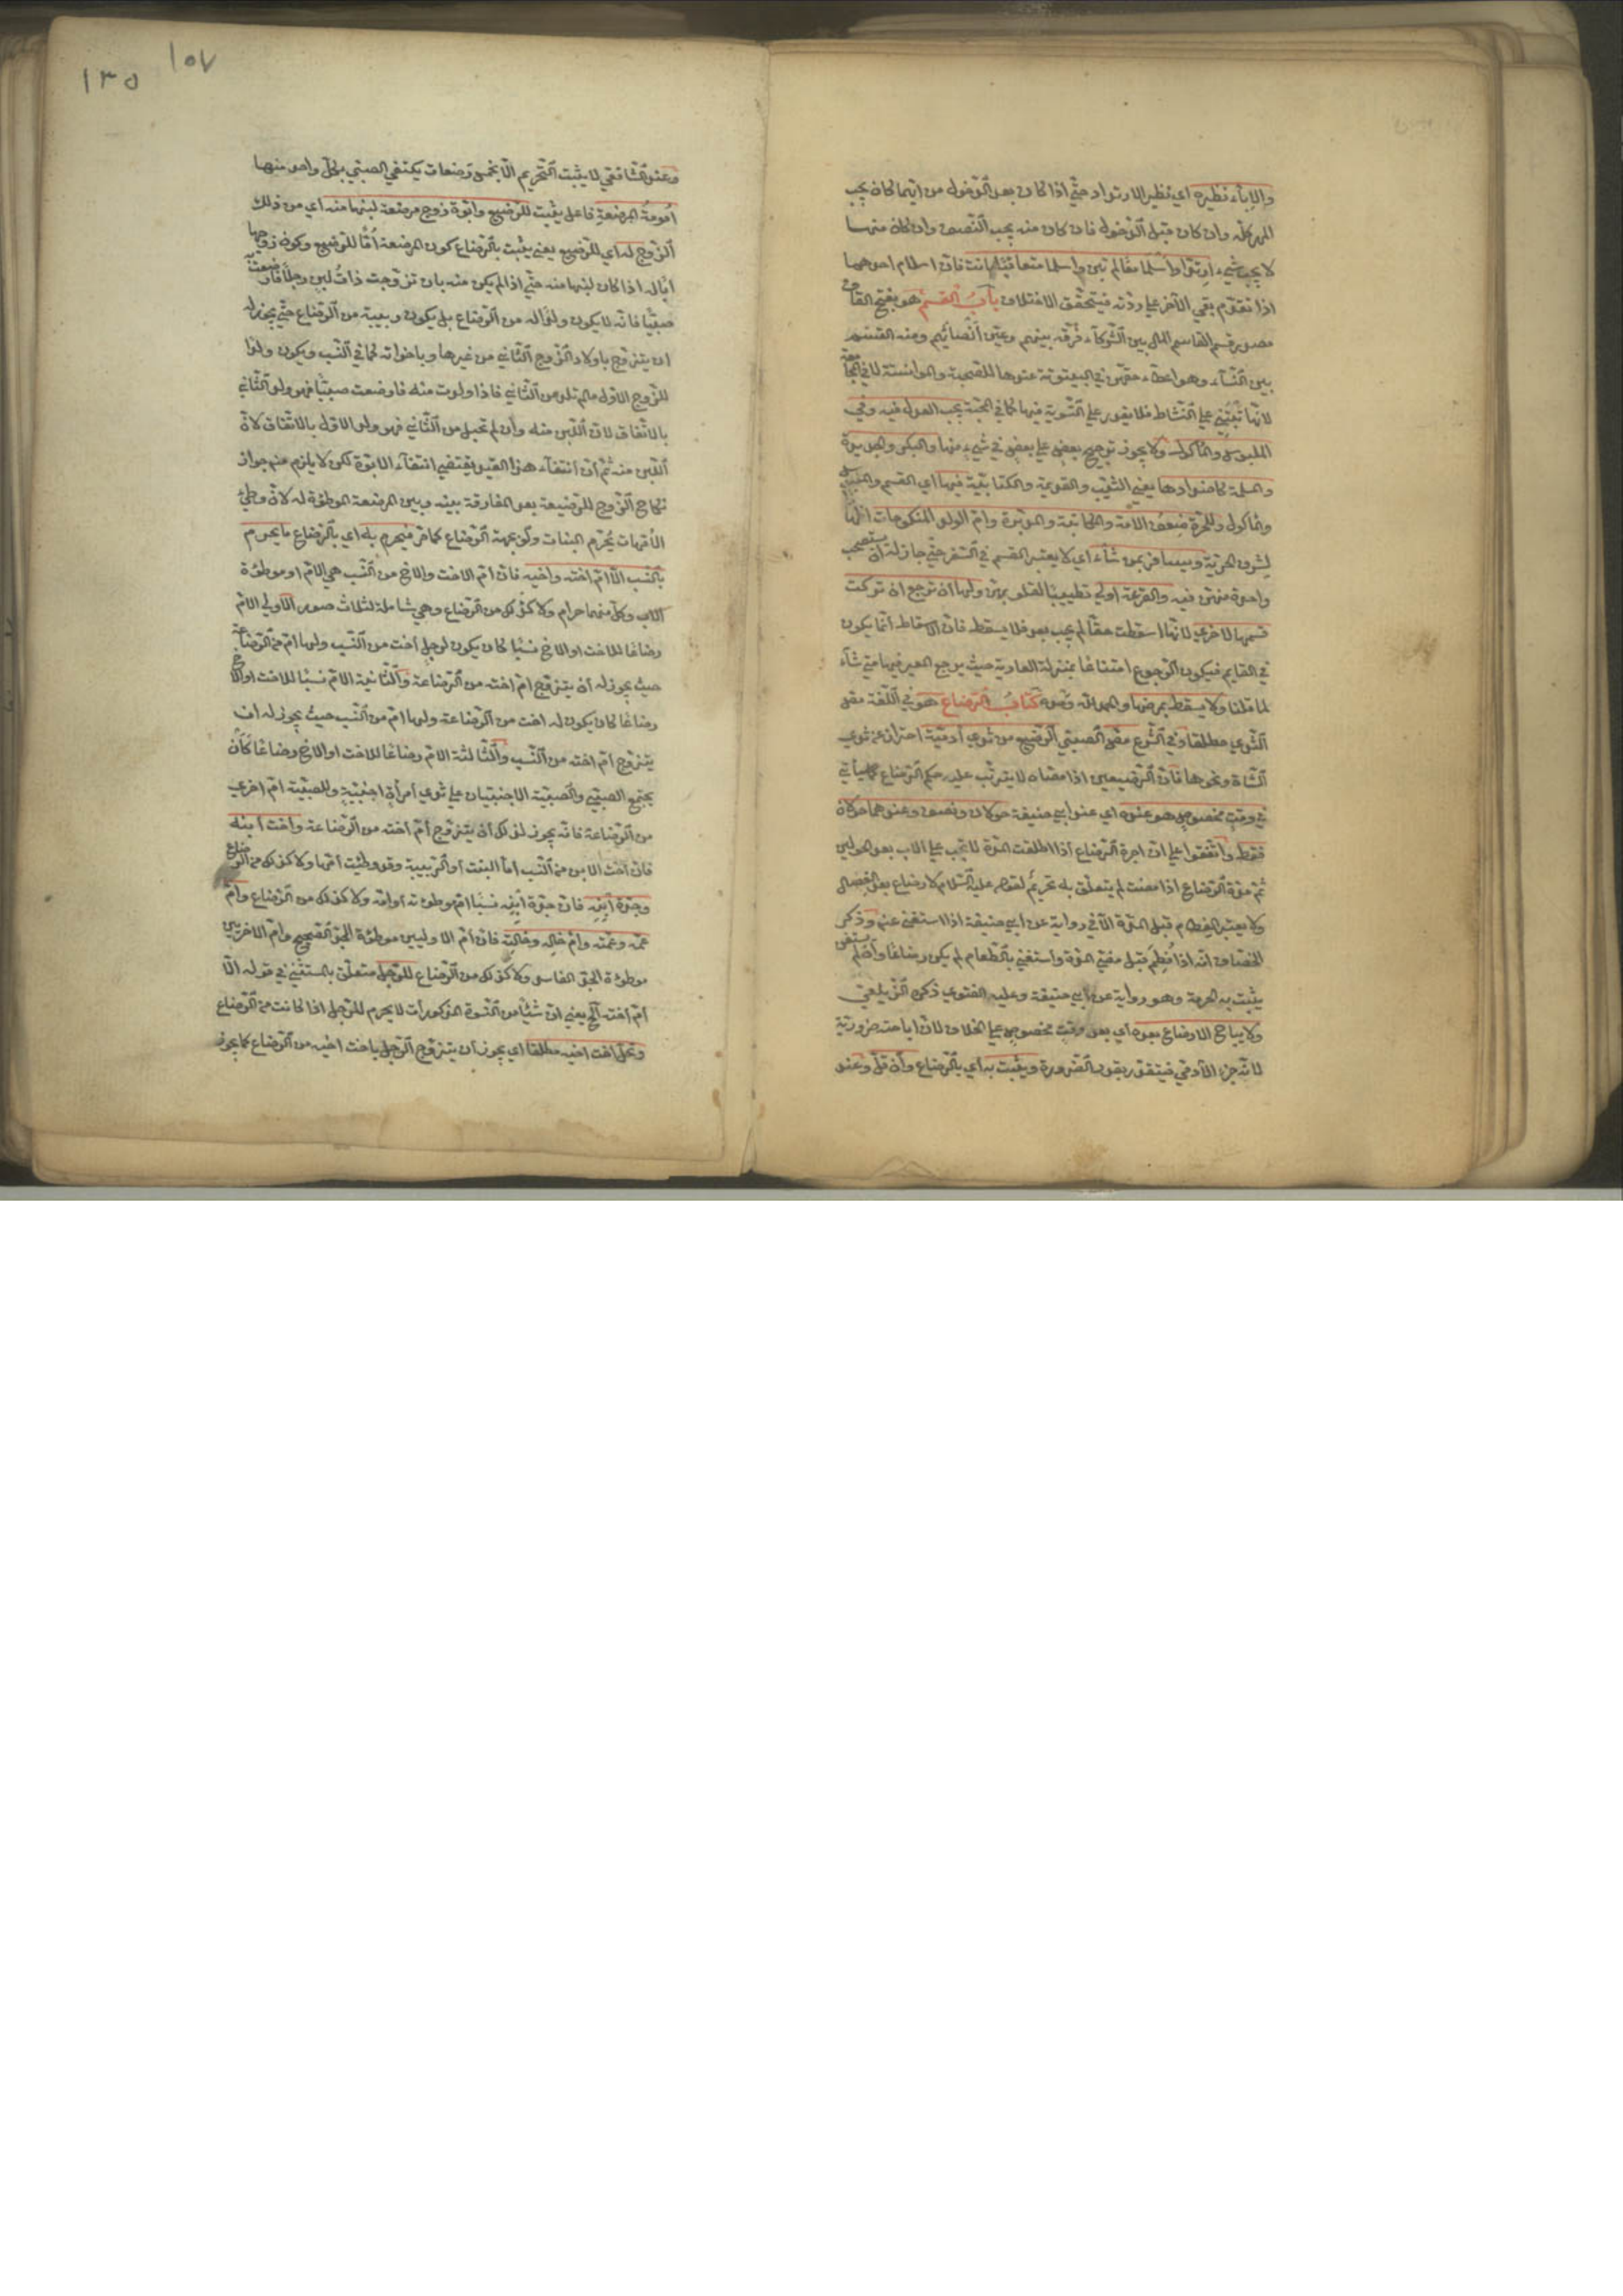 والإباء نظيره اي نظير الارتداد حتى اذا كان بعد الدخول من ايهما كان يجب
المهر كله وان كان قبل الدخول فان كان منه يجب النصف وان كان منها
لا يجب شيء ارتدا واسلما معا لم تبن واسلما متعاقبا بانت فان اسلام احدهما
اذا تقدم بقي الآخر على ردته فيتحقق الاختلاف باب القسم هو بفتح القاف
مصدر قسم القاسم المال بين الشركاء فرقه بينهم وعين انصبائهم ومنه القسم
بين النساء وهو اعطاء حقهن في البيتوتة عندها للصحبة والموانسة لا في المجامعة
لانها تبتني على النشاط فلا يقدر على التسوية فيها كما في المحبة يجب العدل فيه وفي
الملبوس والمأكول ولا يجوز ترجيح بعض على بعض في شيء منها والبكر والجديدة
والمسلمة كاضدادها يعني الثيب والقديمة والكتابية فيها اي القسم والملبوس
والمأكول وللحرة ضعف الامة والمكاتبة والمدبرة وام الولد المنكوحات اظهارا
لشرف الحرية ويسافر بمن شاء اي لا يعتبر القسم في السفر حتى جاز له ان يستصحب
واحدة منهن فيه والقرعة اولى تطييبا لقلوبهن ولها ان ترجع ان تركت
قسمها لاخرى لانها اسقطت حقا لم يجب بعد فلا يسقط فان الاسقاط انما يكون
في القايم فيكون الرجوع امتناعا بمنزلة العارية حيث يرجع المعير فيها متى شاء
لما قلنا ولا يسقط بمرضها والحمد لله وحده كتاب الرضاع هو في اللغة مص
الثدي مطلقا وفي الشرع مص الصبي الرضيع من ثدي آدمية احتراز عن ثدي
الشاة ونحوها فان الرضيعين اذا مصاه لا يترتب عليه حكم الرضاع كما سيأتي
في وقت مخصوص هو عنده اي عند ابي حنيفة حولان ونصف وعندهما حولان
فقط واتفقوا على ان اجرة الرضاع اذا اطلقت المدة لا تجب على الاب بعد الحولين
ثم مدة الرضاع اذا مضت لم يتعلق به تحريم لقوله عليه السلام لا رضاع بعد الفصال
ولا يعتبر الفطام قبل المدة الا في رواية عن ابي حنيفة اذا استغنى عنه وذكر
الخصاف انه اذا فطم قبل مضي المدة واستغنى بالطعام لم يكن رضاعا وان لم يستغن
يثبت به الحرمة وهو رواية عن ابي حنيفة وعليه الفتوى ذكره الزيلعي
ولا يباح الارضاع بعده اي بعد وقت مخصوص على الخلاف لان اباحته ضرورية
لانه جزء الآدمي فيتقدر بقدر الضرورة ويثبت به اي بالرضاع وان قل وعند
١٥٧
١٣٥
وعند الشافعي لا يثبت التحريم الا بخمس رضعات يكتفي الصبي بكل واحد منها
امومة المرضعة فاعل يثبت للرضيع وابوة زوج مرضعة لبنها منه اي من ذلك
الزوج له اي للرضيع يعني يثبت بالرضاع كون المرضعة اما للرضيع وكون زوجها
ابا له اذا كان لبنها منه حتى اذا لم يكن منه بان تزوجت ذات لبن رجلا فارضعت به
صبيا فانه لا يكون ولدا له من الرضاع بل يكون ربيبه من الرضاع حتى يجوز له
ان يتزوج باولاد الزوج الثاني من غيرها وباخواته كما في النسب ويكون ولدا
للزوج الاول ما لم تلد من الثاني فاذا ولدت منه فارضعت صبيا فهو ولد الثاني
بالاتفاق لان اللبن منه وان لم تحبل من الثاني فهو ولد الاول بالاتفاق لان
اللبن منه ثم ان انتفاء هذا القيد يقتضي انتفاء الابوة لكن لا يلزم منه جواز
نكاح الزوج للرضيعة بعد المفارقة بينه وبين المرضعة الموطوءة له لان وطئ
الامهات يحرم البنات ولو بجهة الرضاع كما مر فيحرم به اي بالرضاع ما يحرم
بالنسب الا ام اخته واخيه فان ام الاخت والاخ من النسب هي الام او موطوءة
الاب وكل منهما حرام ولا كذلك من الرضاع وهي شاملة لثلاث صور الاولى الام
رضاعا للاخت او الاخ نسبا كان يكون لرجل اخت من النسب ولها ام من الرضاعة
حيث يجوز له ان يتزوج ام اخته من الرضاعة والثانية الام نسبا للاخت او الاخ
رضاعا كان يكون له اخت من الرضاعة ولها ام من النسب حيث يجوز له ان
يتزوج ام اخته من النسب والثالثة الام رضاعا للاخت او الاخ رضاعا كان
يجتمع الصبي والصبية الاجنبيان على ثدي امرأة اجنبية وللصبية ام اخرى
من الرضاعة فانه يجوز لذلك ان يتزوج ام اخته من الرضاعة واخت ابنه
فان اخت الابن من النسب اما البنت او الربيبة وقد وطئت امها ولا كذلك من الرضاع
وجدة ابنه فان جدة ابنه نسبا ام موطوءته او امه ولا كذلك من الرضاع وام
عمه وعمته وام خاله وخالته فان ام الاوليين موطوءة الجد الصحيح وام الاخريين
موطوءة الجد الفاسد ولا كذلك من الرضاع للرجل متعلق بالمستثنى في قوله الا
ام اخته الخ يعني ان شيئا من النسوة المذكورات لا يحرم للرجل اذا كانت من الرضاع
وتحل اخت اخيه مطلقا اي يجوز ان يتزوج الرجل باخت اخيه من الرضاع كما يجوز